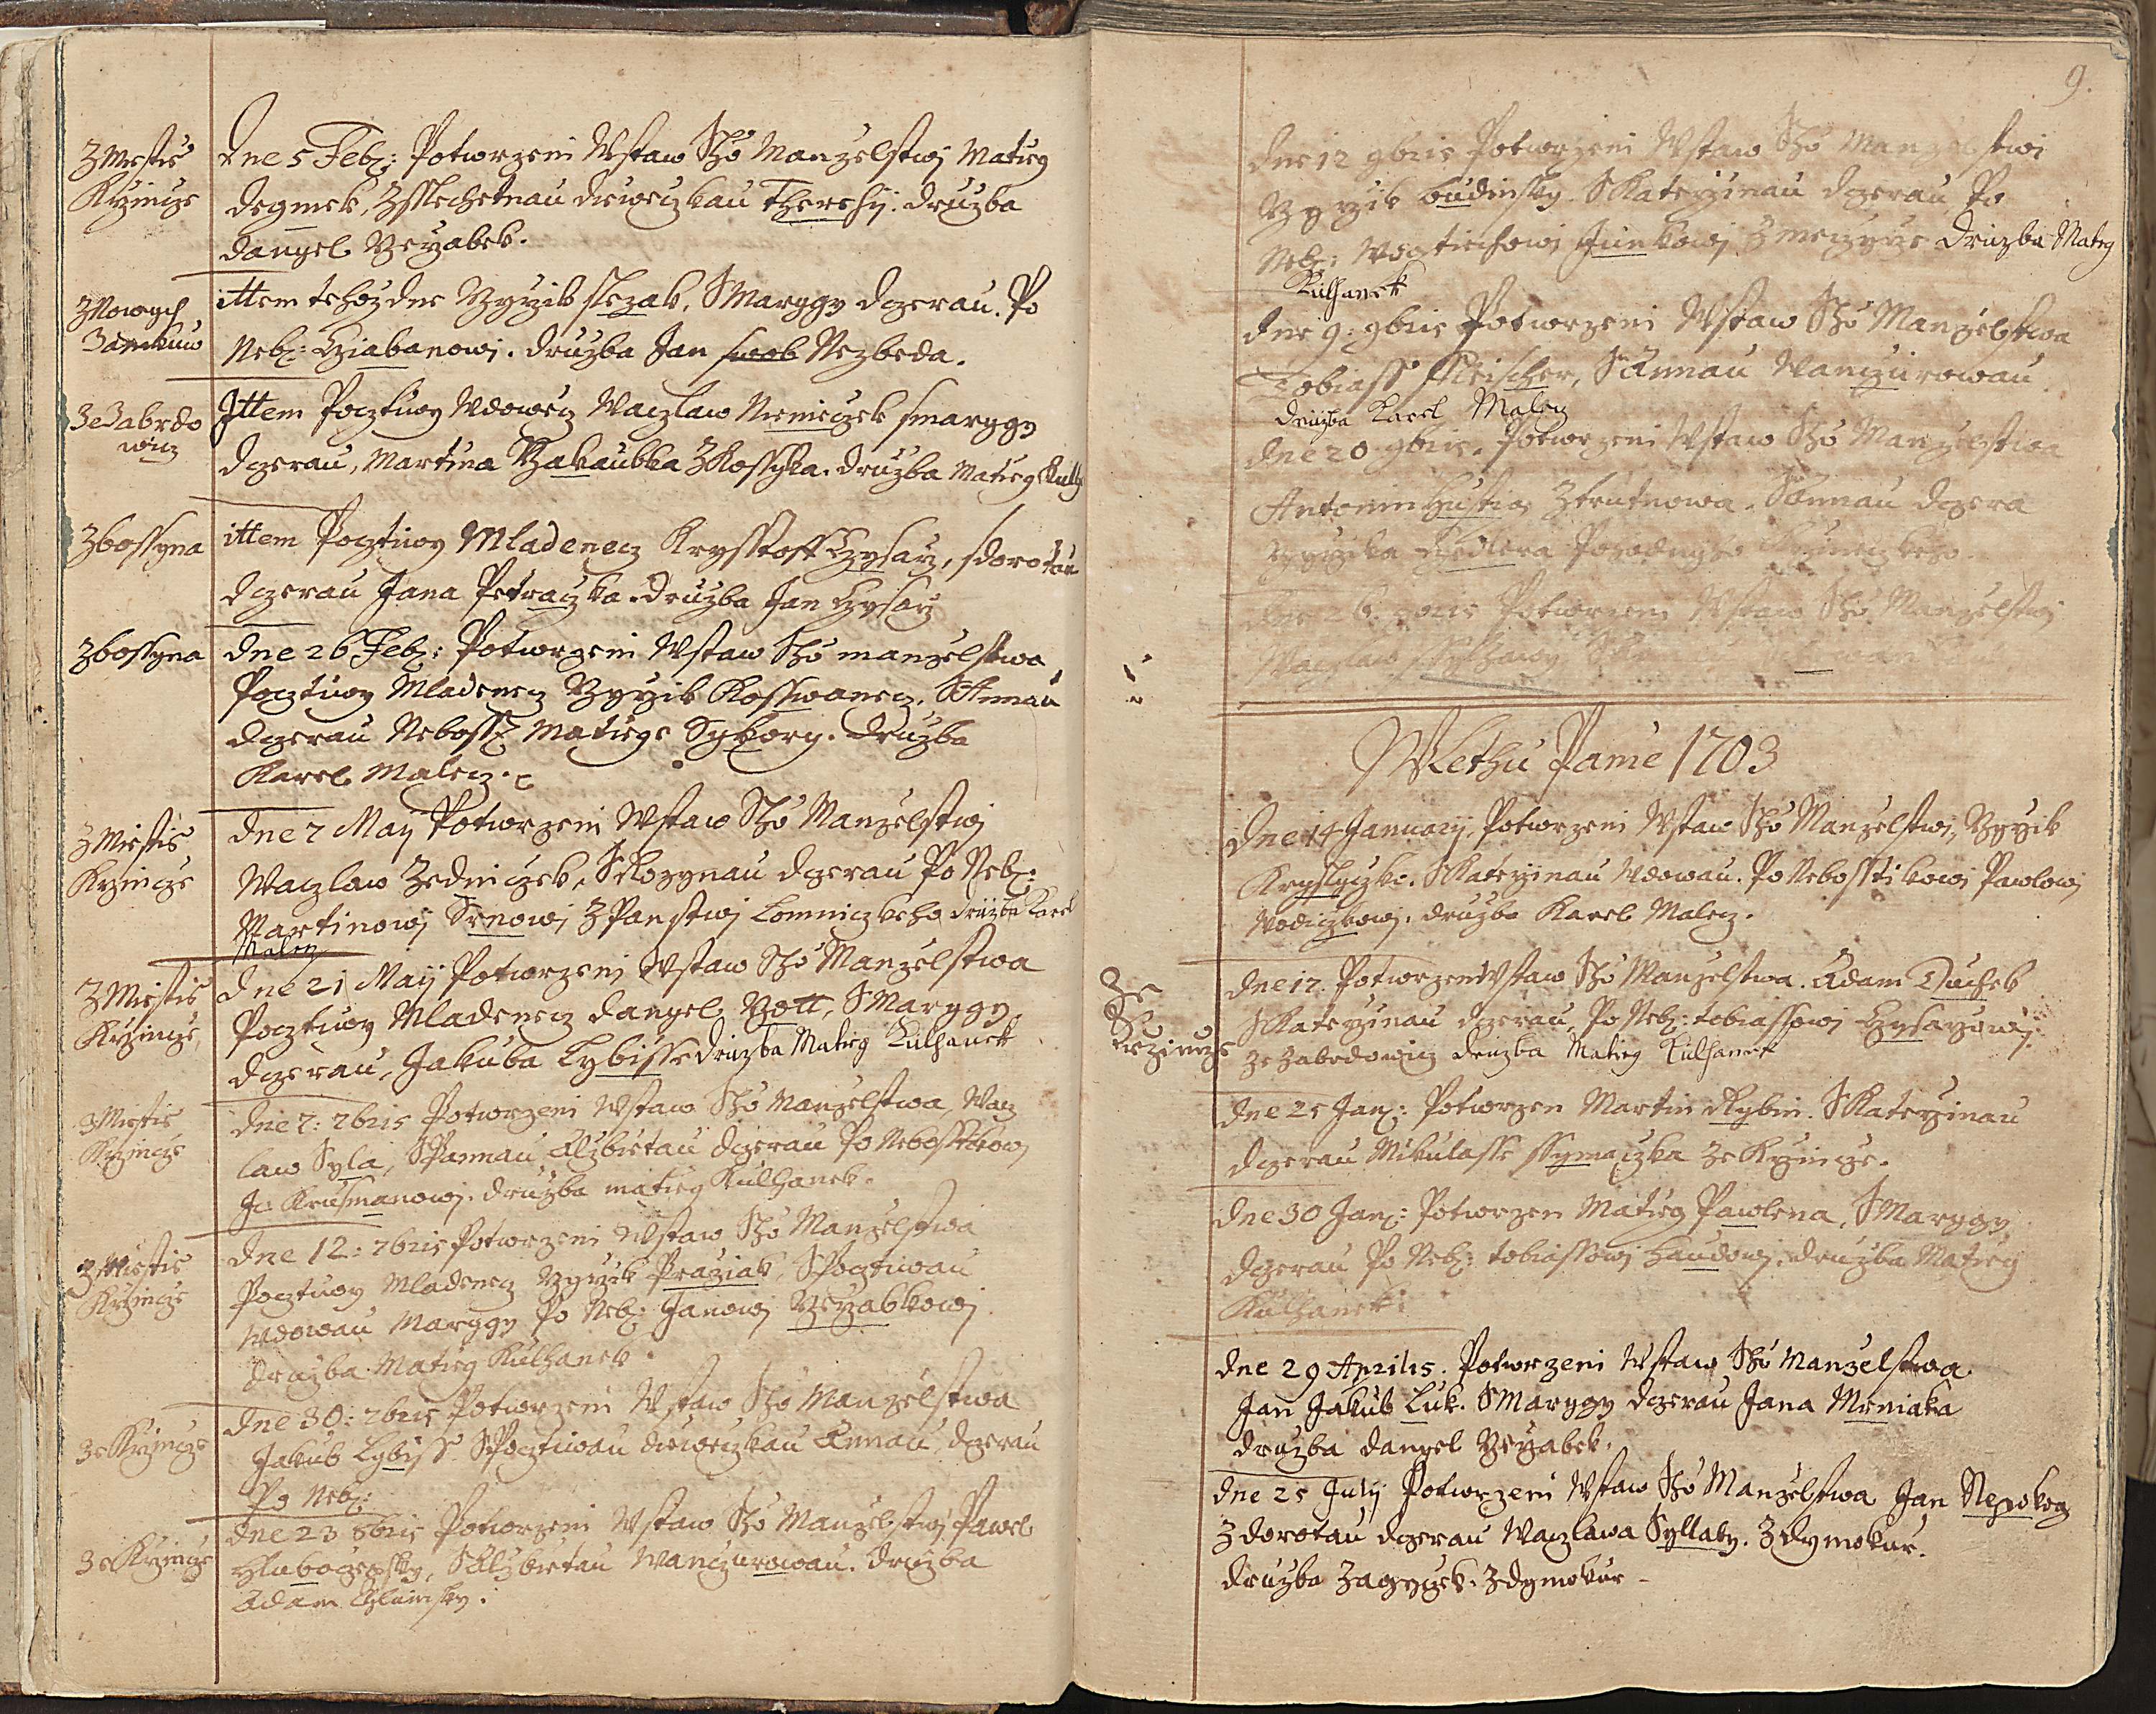 Z Miestis
Krzincze
Dne 5 Feb: Potwrzeni Wstaw Sho Manzelstwj Matieg
Degmek, Zsslechetnau diewczkau Theresij. Druzba
Dangel Rezabek.
Z Nowych
Zamkuw
ittem tehoz dne Rzyzik slezak, S Marygy dczerau. Po
Neb: Cziabanowj. Druzba Jan Nezbeda.
Ze Zabrdo
wicz
Ittem Pocztiwy Wdowecz Waczlaw Niemeczek s maryggy
dczerau, Martina Rzakaubka Z Rossyka. Druzba Matieg Kulh
Z bossyna
ittem Pocztiwy Mladenecz Krysstoff Czysarz, s dorotau
dczerau Jana Petraczka. Druzba Jan Czysarz
Z bossyna
Dne 26 Feb: Potwrzeni Wstaw Sho manzelstwa
Pocztiwy Mladenecz Rzyzik Kosswanecz, S Annau
dczerau Neboss Matiege Sykory. Druzba
Karel Malecz.
Z Miestis
Krzincze
Dne 7 Maij Potwrzeni Wstaw Sho Manzelstwj
Waczlaw Zedniczek, S Rozynau dczerau Po Neb:
Martinowj Srnowj Z Panstwj Lomniczkeho druzba Karel
Malecz
Z Miestis
Krzincze,
Dne 21 Maij Potwrzenj Wstaw Sho Manzelstwa
Pocztiwy Mladenecz Dangel Rott, S Maryggy,
dczerau, Jakuba Lybisse druzba Matieg Kulhanek
Z Miestis
Krzincze
Dne 7: 7bris Potwrzeni Wstaw Sho Manzelstwa, Wacz
law Syla, S Pannau Alzbietau dczerau Po Nebosstikow
Krusmanowj. Druzba matieg Kulhanek.
Z Miestis
Krzincze
Dne 12: 7bris Potwrzeni Wstaw Sho Manzelstwa
Pocztiwy Mladenecz Rzyzik Praziak, S Pocztiwau
Wdowau Maryggy Po Neb: Janowj Rezabkowj
Druzba Matieg Kulhanek.
Ze Krzincze
Dne 30: 7bris Potwrzeni Wstaw Sho Manzelstwa
Jakub Lybiss. S Pocztiwau diewczkau Annau, dczerau
Po Neb:
Ze Krzincze
Dne 23 8bris Potwrzeni Wstaw Sho Manzelstwj Pawel
Hlubocžepsky, S Alzbietau Wanczurowau. Druzba
Adam Chlumsky.
9.
Dne 12 9bris Potwrzeni Wstaw Sho Manzelstwi
Rzyzik budinsky. S Katerzinau dczerau Po
Neb: Wogtiechowj Junkowj Z Meczyrze Druzba Matieg
Kulhanek
Dne 9: 9bris Potwrzeni Wstaw Sho Manzelstwa
Tobiass Fleischer, S Annau Wanczurowau.
Druzba Karel Malecz
Dne 20 9bris. Potwrzeni Wstaw Sho Manzelstwa
Antonin Z trutnowa. S Annau dczera
Dne 26. 9bris Potwrzeni Wstaw Sho Manzelstwj
Waczlaw
W Lethu Panie 1703
Dne 14 Januarij, Potwrzeni Wstaw Sho Manzelstwj, Rzyzik
Kryslyczke. S Katerzinau Wdowau. Po Nebosstikowj Pawlowj
Wodiczkowj. Druzba Karel Malecz.
Ze
Krzincze
Dne 17. Potwrzeni Wstaw Sho Manzelstwa. Adam Duchek
S Katerzinau dczerau, Po Neb: tobiassowj Czysarzowj.
Ze Zabrdowicz Druzba Matieg Kulhanek
Dne 25 Jan: Potwrzen Martin Rybin. S Katerzinau
dczerau Mikulasse Ssymaczka Ze Krzincze.
Dne 30 Jan: Potwrzen Matieg Pawlena, S Maryggy
dczerau Po Neb: tobiassowj Haudowj. Druzba Matieg
Kulhanek.
Dne 29 Aprilis. Potwrzeni Wstaw Sho Manzelstwa
Jan Jakub Luk. S Maryggy dczerau Jana Mrniaka
Druzba Dangel Rezabek.
Dne 25 Julij Potwrzeni Wstaw Sho Manzelstwa Jan Nepokog
Z dorotau dczerau Waczlawa Syllaby. Z dymokur.
Druzba Zagyczek. Z dymokur